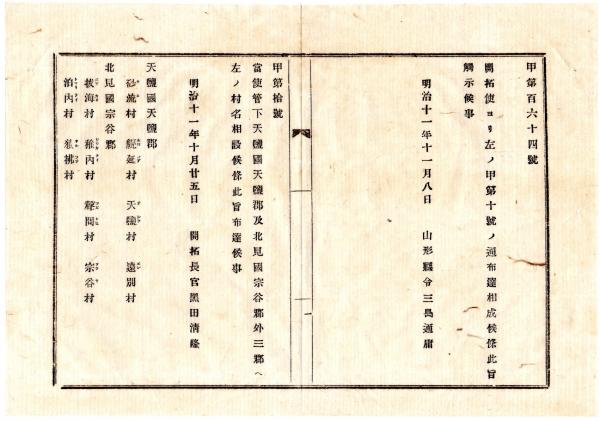 甲第百六十四號
開拓使ヨリ左ノ甲第十號ノ通布達相成候條此旨
觸示候事
明治十一年十一月八日 山形縣令三島通庸
甲第拾號
當使管下天鹽國天鹽郡及北見國宗谷郡外三郡ヘ
左ノ村名相設候條此旨布達候事
明治十一年十月廿五日 開拓長官黑田清隆
天鹽國天鹽郡
沙流村 幌延村 天鹽村 遠別村
北見國宗谷郡
拔海村 稚內村 聲問村 宗谷村
泊內村 猿拂村